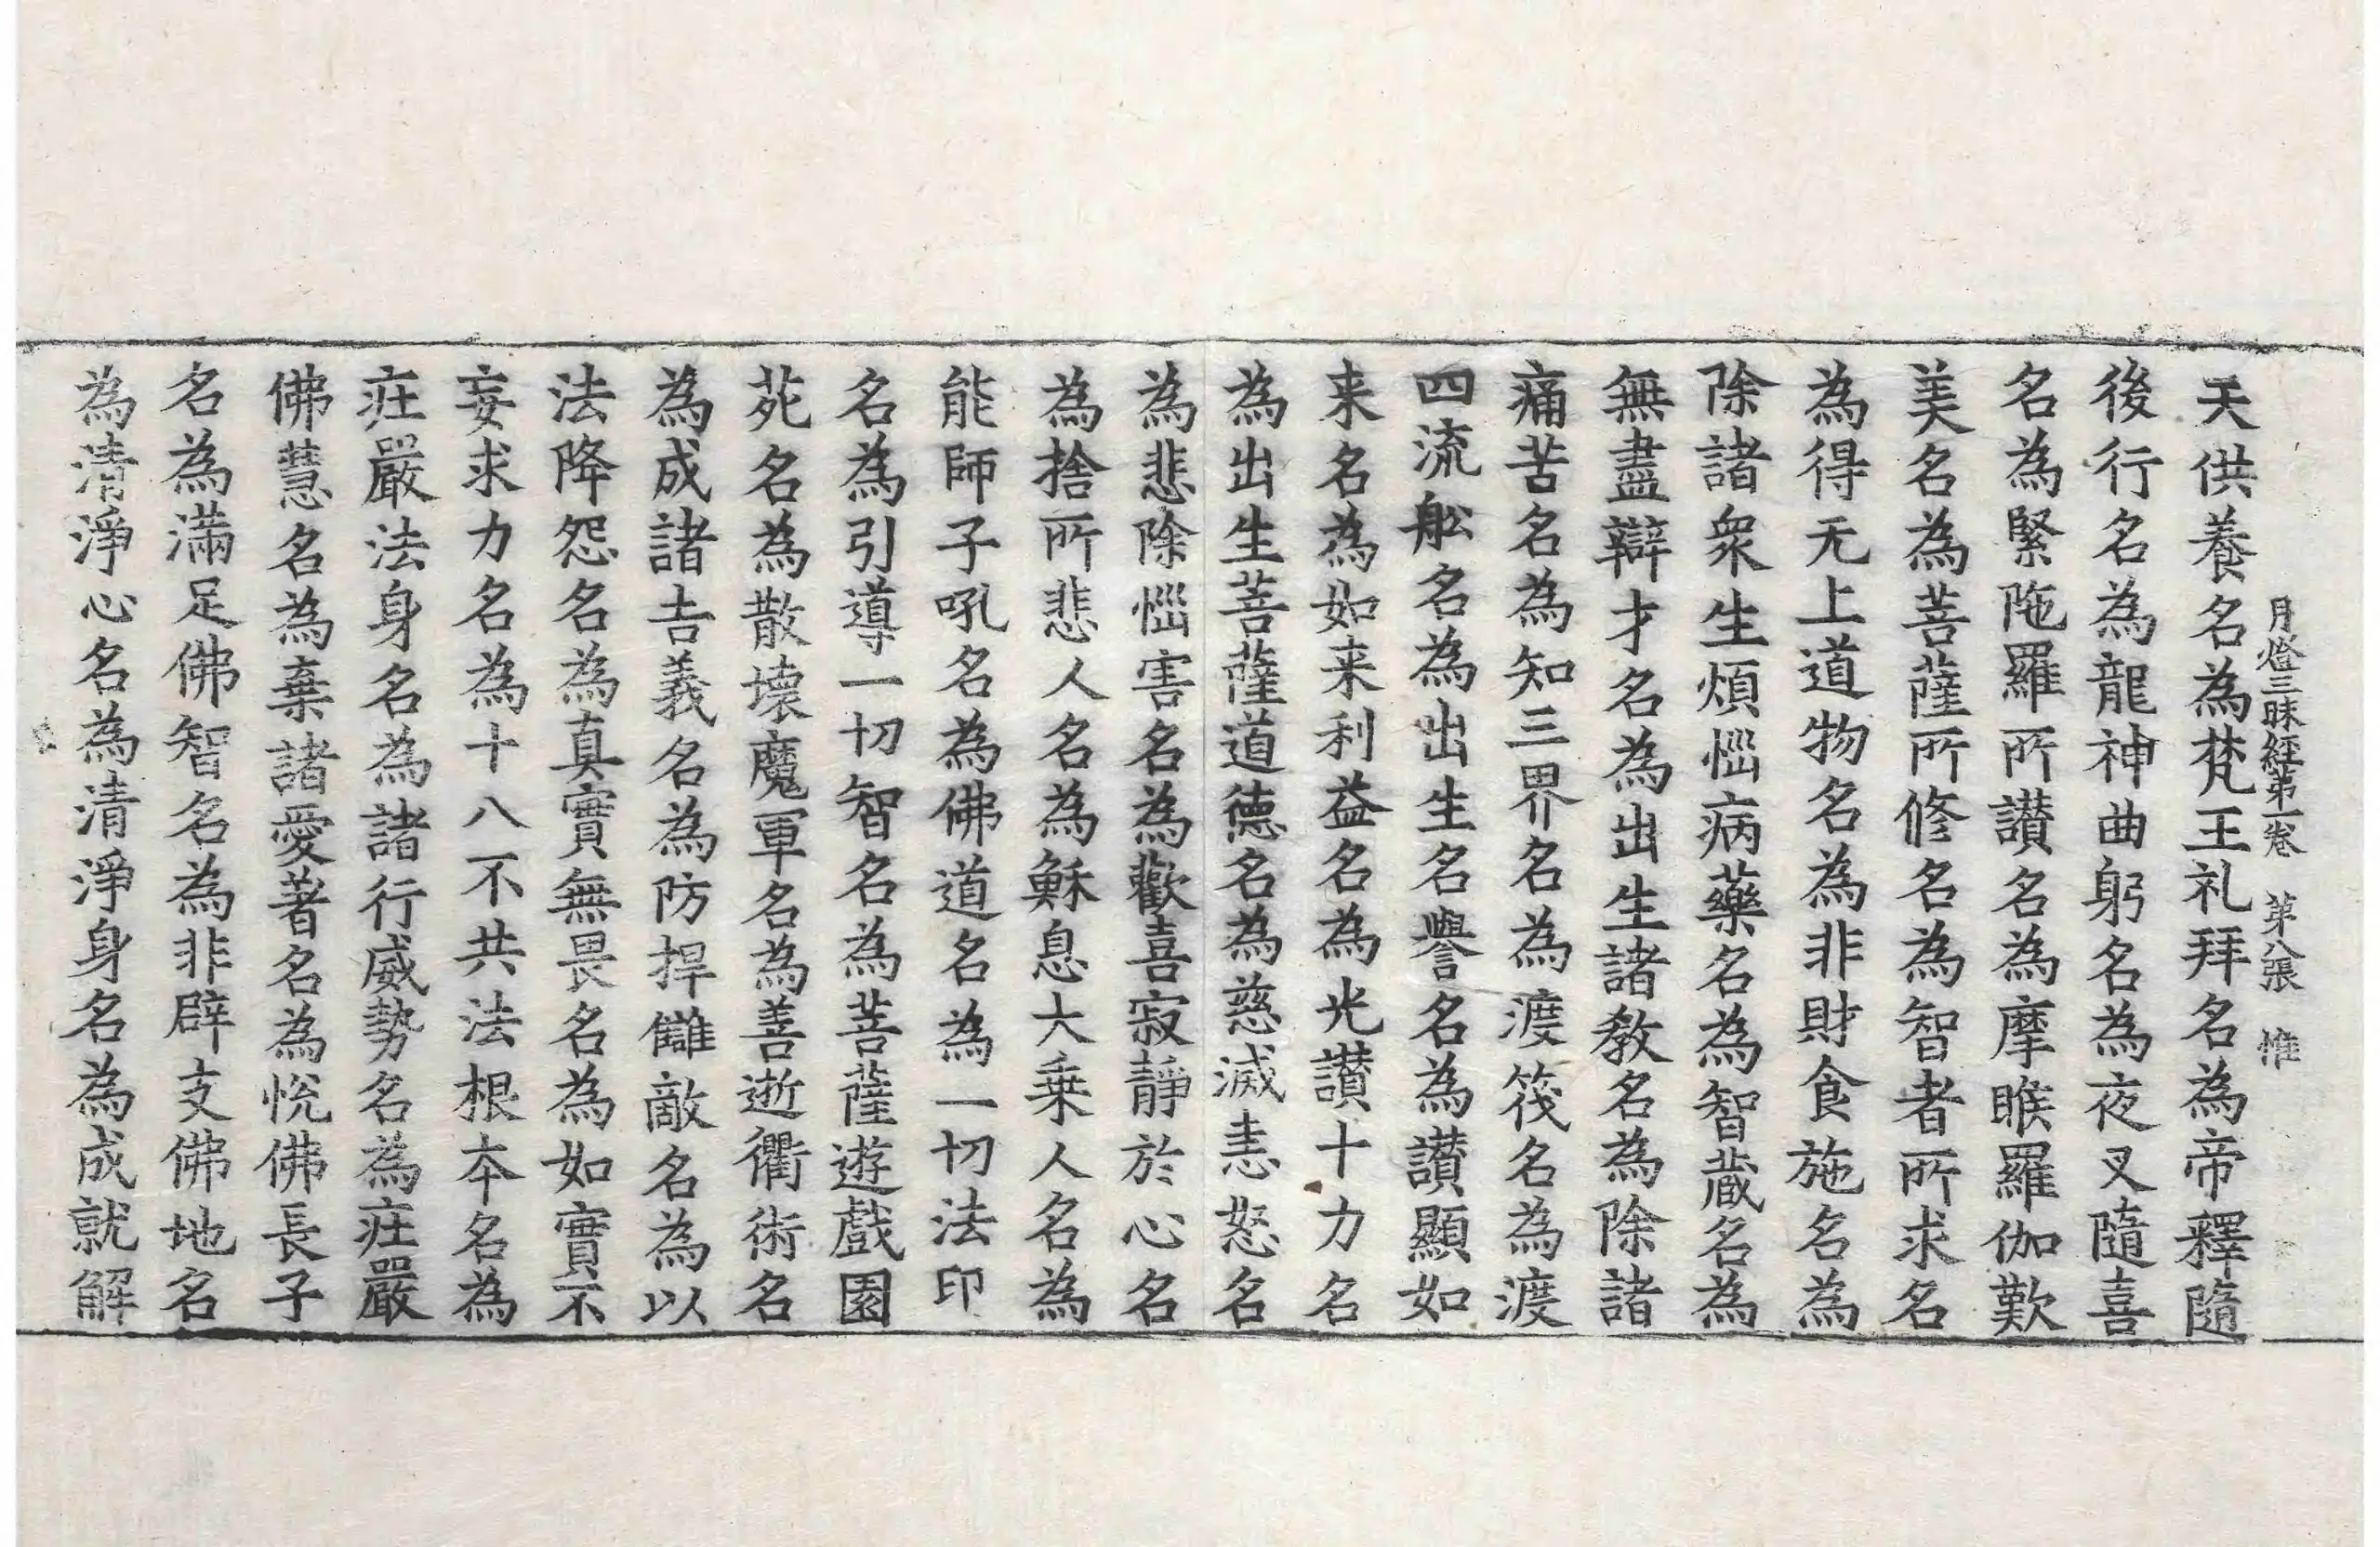 月燈三昧經第一卷　第八張　惟
天供養名為梵王礼拜名為帝釋隨
後行名為龍神曲躬名為夜叉隨喜
名為緊陁羅所讃名為摩睺羅伽歎
美名為菩薩所修名為智者所求名
為得无上道物名為非財食施名為
除諸衆生煩惱病藥名為智蔵名為
無盡辯才名為出生諸教名為除諸
痛苦名為知三界名為渡筏名為渡
四流舩名為出生名譽名為讃顯如
来名為如来利益名為光讃十力名
為出生菩薩道德名為慈滅恚怒名
為悲除惱害名為歡喜寂靜於心名
為捨所悲人名為穌息大乗人名為
能師子吼名為佛道名為一切法印
名為引導一切智名為菩薩遊戲園
苑名為散壞魔軍名為善逝衢術名
為成諸吉義名為防捍讎敵名為以
法降怨名為真實無畏名為如實不
妄求力名為十八不共法根本名為
莊嚴法身名為諸行威勢名為莊嚴
佛慧名為棄諸愛著名為悅佛長子
名為滿足佛智名為非辟支佛地名
為清淨心名為清淨身名為成就解